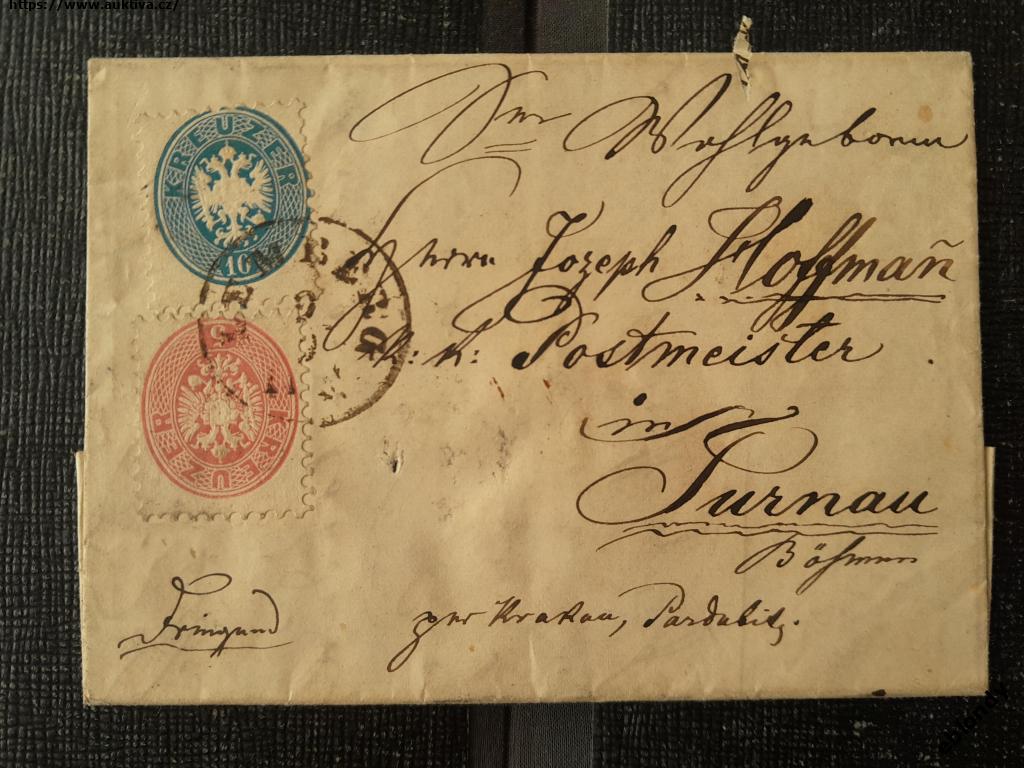 https://www.auktiva.cz/
KREUZER
10
KREUZER
5
Wohlgeboren
Herrn Jozeph Hoffmañ
k: k: Postmeister
in
Turnau
Böhmen
Dringend
per Krakau, Pardubitz.